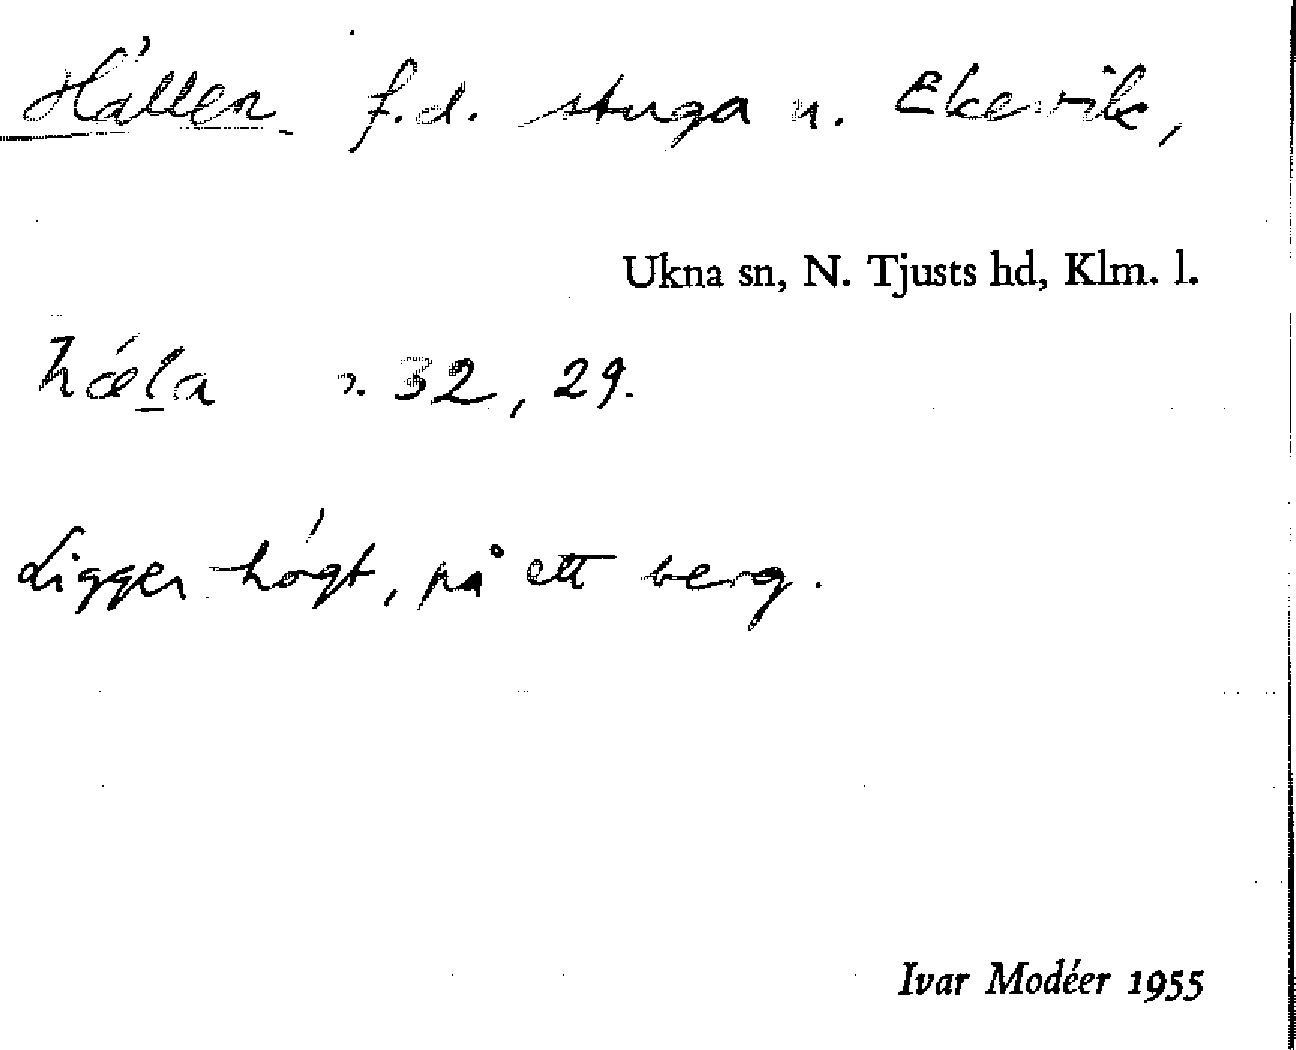 Hällen f.d. stuga u. Ekevik,
Ukna sn, N. Tjusts hd, Klm. l.
hæla 32, 29.
Ligger högt, på ett berg.
Ivar Modéer 1955